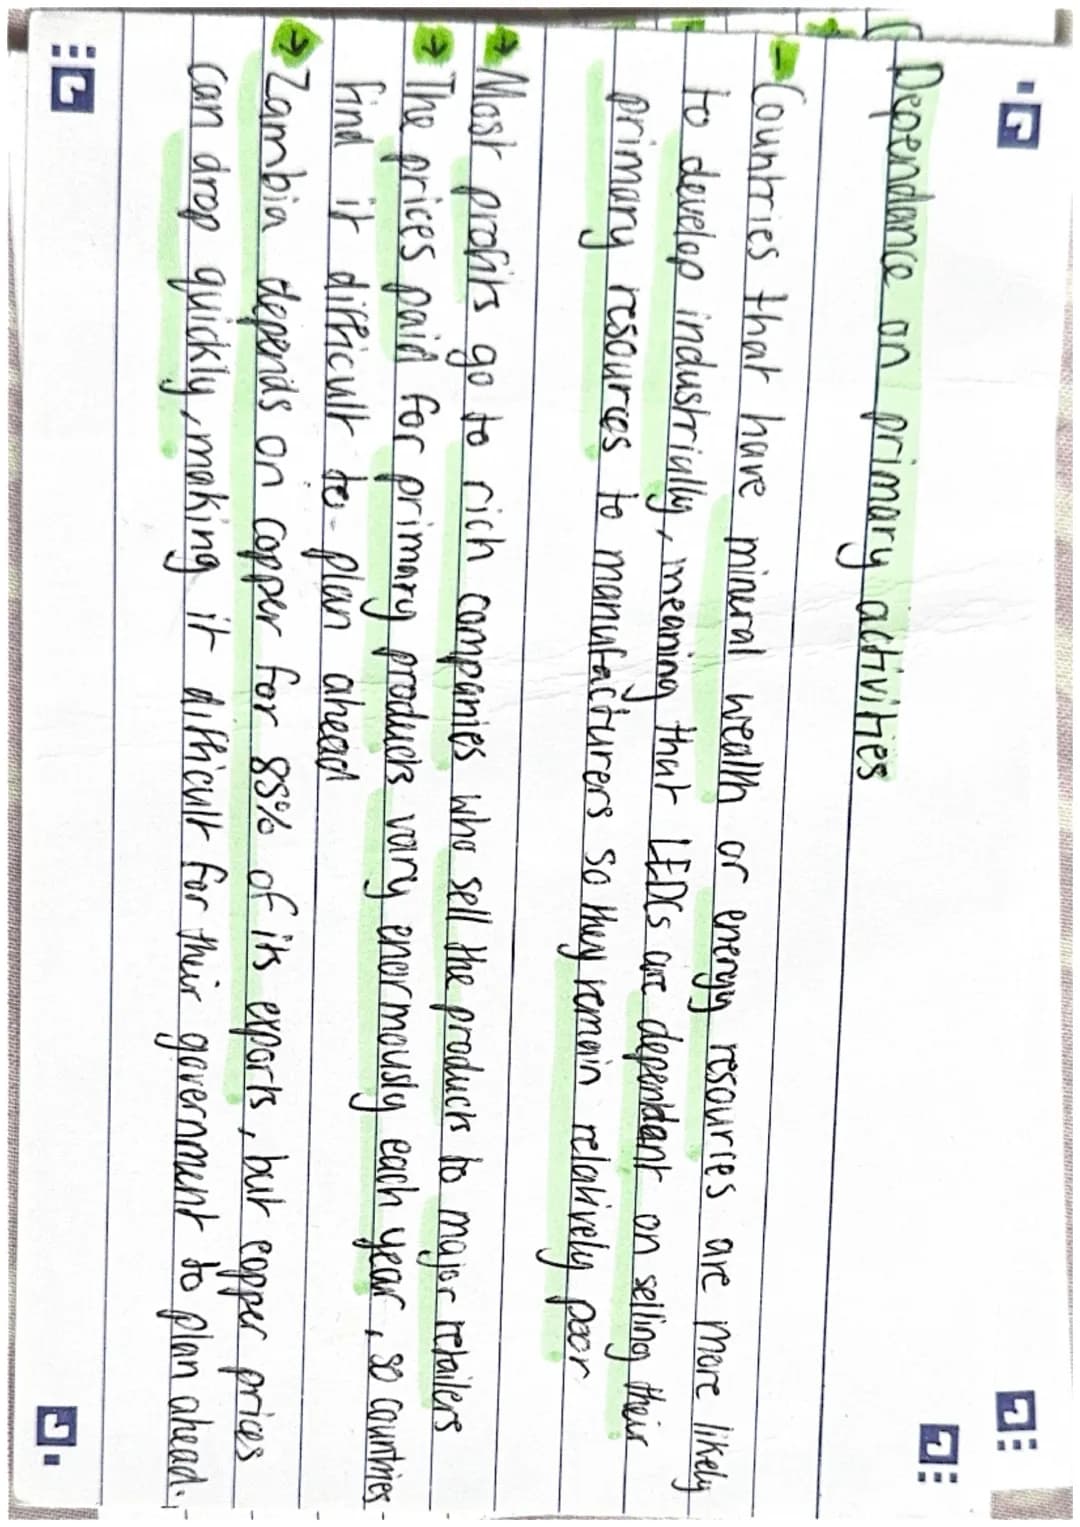 Dependance on primary activities
- Countries that have mineral wealth or energy resouries are more likely
to develop industrially, meaning that LEDCs are dependant on selling their
primary resources to manufacturers so they remain relatively poor
→ Most profits go to rich companies who sell the products to major retailers
→ The prices paid for primary products vary enormously each year, so countries
find it difficult to plan ahead
→ Zambia depends on copper for 85% of its exports, but copper prices
can drop quickly, making it difficult for their government to plan ahead.